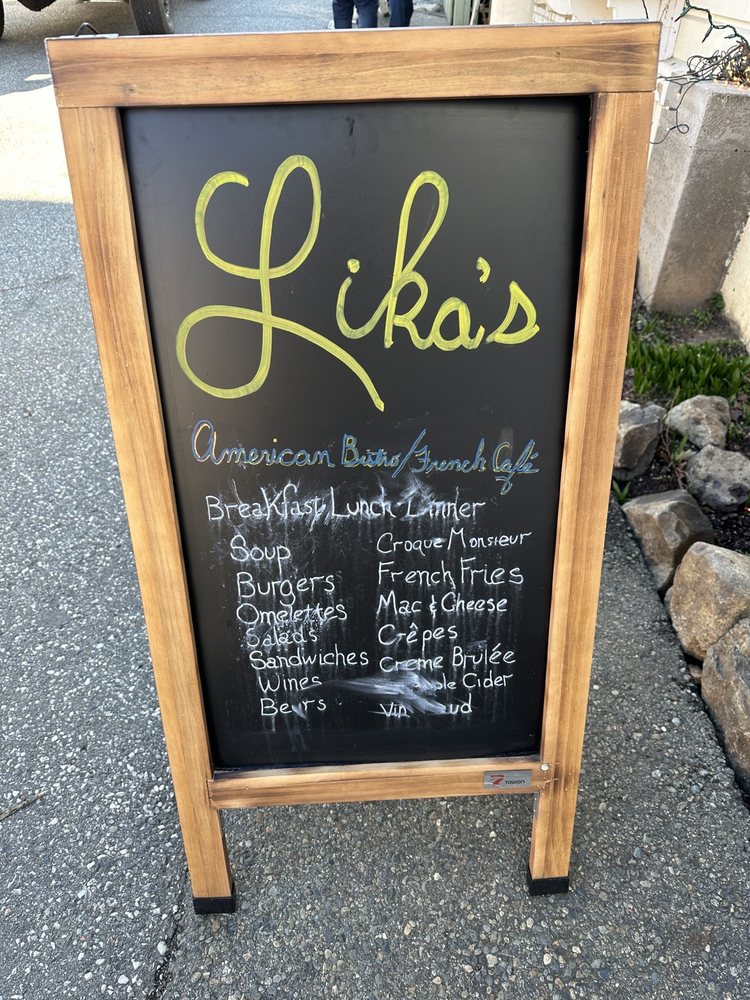 Lika's
American Bistro/French Café
Breakfast Lunch Dinner
Soup
Burgers
Omelettes
Salads
Sandwiches
Wines
Beers
Croque Monsieur
French Fries
Mac & Cheese
Crêpes
Creme Brulée
Cider
7 TOWON